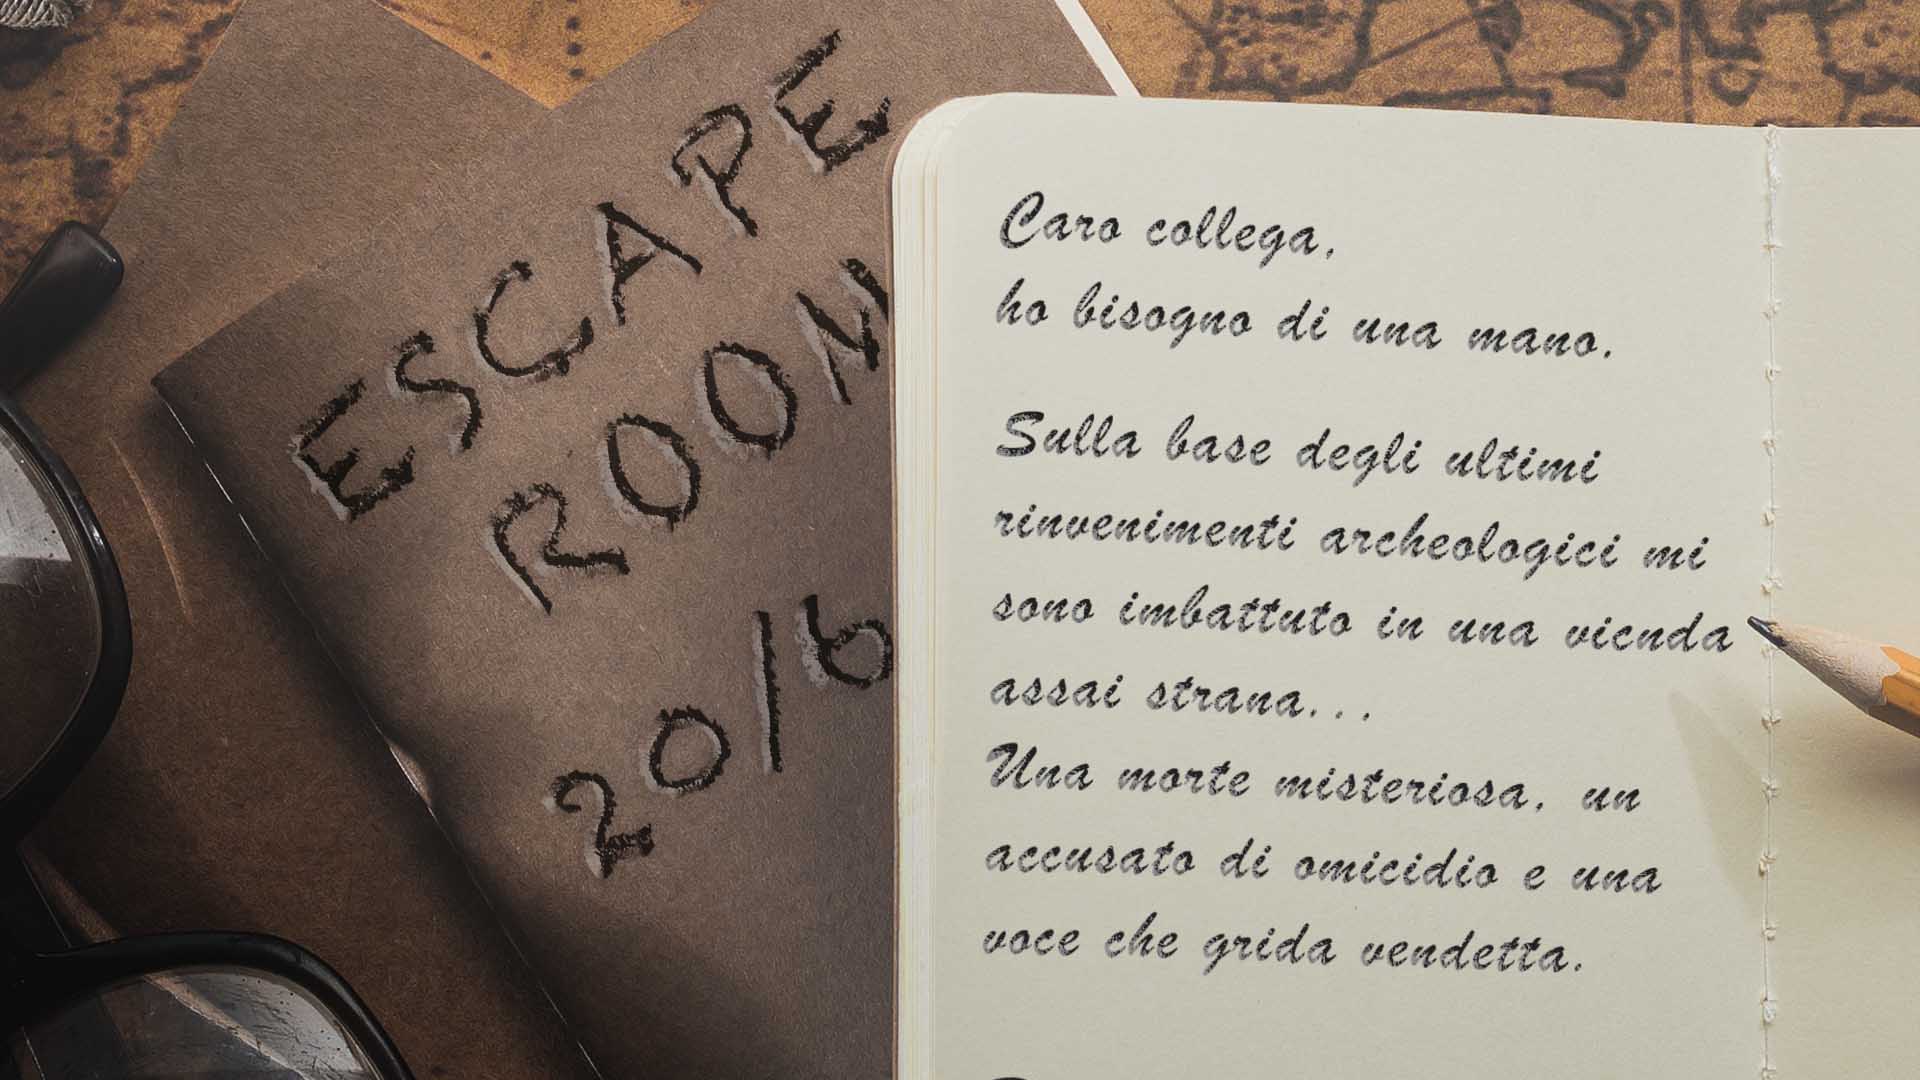 ESCAPE
ROOM
2016
Caro collega,
ho bisogno di una mano.
Sulla base degli ultimi
rinvenimenti archeologici mi
sono imbattuto in una vicnda
assai strana...
Una morte misteriosa, un
accusato di omicidio e una
voce che grida vendetta.